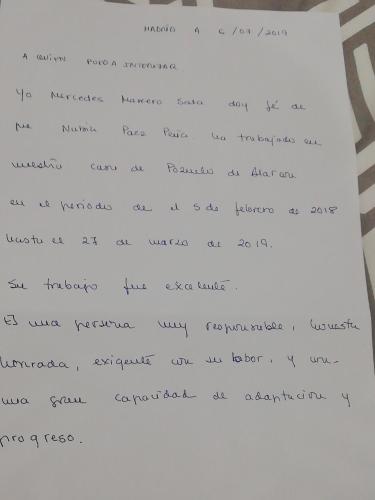 MADRID A 6/07/2019
A QUIEN PUEDA INTERESAR
Yo Mercedes Marcero Sara doy fé de
que Nubia Paez Peria ha trabajado en
nuestra casa de Pozuelo de Alarcon
en el periodo de el 5 de febrero de 2018
hasta el 27 de marzo de 2019.
Su trabajo fue excelente.
Es una persona muy responsable, honesta
honrada, exigente con su labor, y con
una gran capacidad de adaptacion y
progreso.